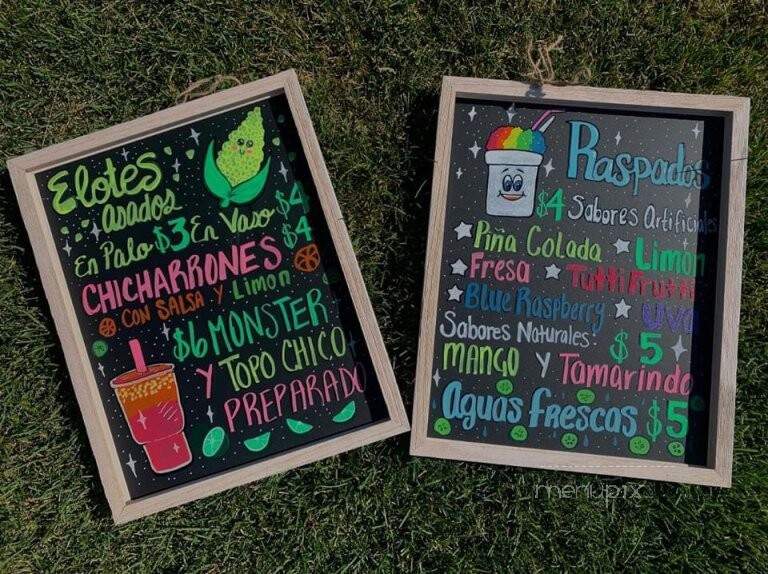 Elotes
asados
En Palo $3 En Vaso $4
CHICHARRONES $4
CON SALSA Y Limon
$6 MONSTER
Y TOPO CHICO
PREPARADO
Raspados
$4 Sabores Artificiales
Piña Colada Limon
Fresa Tutti Frutti
Blue Raspberry Uva
Sabores Naturales: $5
MANGO Y Tamarindo
Aguas frescas $5
menupix